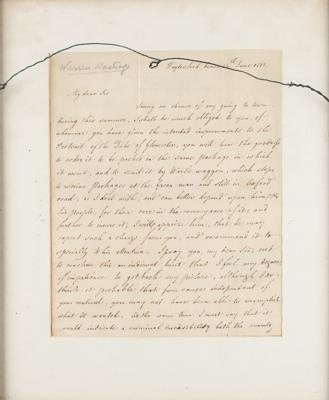 Warren Hastings
Daylesford June 12th 1811
My dear Sir
Seeing no chance of my going to town
during this summer, I shall be much obliged to you, if,
whenever you have given the intended improvements to the
Portrait of the Duke of Gloucester, you will have the goodness
to order it to be packed in the same package in which
it went, and to send it by waggon, which stops
to receive packages at the Green man and still in Oxford
road; as I deal with, and can better depend upon him & 
his people, for their care in the conveyance of it; and
further to insure it, I will apprize him, that he may
expect such a charge from you, and recommend it to
specially to his attention. I pray you, my dear Sir, not
to construe this an indirect hint that I feel any degree
of impatience to get back my picture; although I do
think it probable that from causes independent of
your control, you may not have been able to accomplish
what it wanted. At the same time I must say, that it
would indicate a criminal insensibility both the